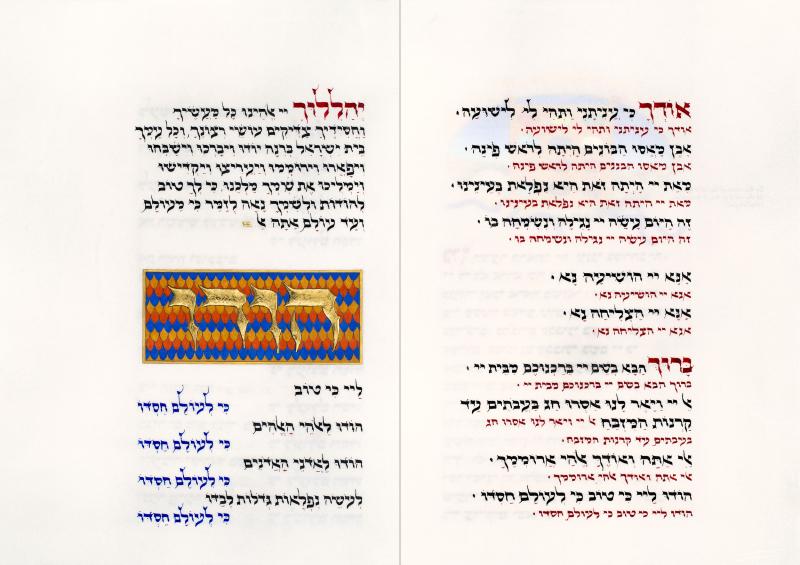 אוֹדְךָ כִּי עֲנִיתָנִי וַתְּהִי לִי לִישׁוּעָה ·
אודך כי עניתני ותהי לי לישועה ·
אֶבֶן מָאֲסוּ הַבּוֹנִים הָיְתָה לְרֹאשׁ פִּינָה ·
אבן מאסו הבונים היתה לראש פינה ·
מֵאֵת יי הָיְתָה זֹּאת הִיא נִפְלָאת בְּעֵינֵינוּ ·
מאת יי היתה זאת היא נפלאת בעינינו ·
זֶה הַיּוֹם עָשָׂה יי נָגִילָה וְנִשְׂמְחָה בוֹ ·
זה היום עשה יי נגילה ונשמחה בו ·
אָנָּא יי הוֹשִׁיעָה נָּא ·
אנא יי הושיעה נא ·
אָנָּא יי הַצְלִיחָה נָּא ·
אנא יי הצליחה נא ·
בָּרוּךְ הַבָּא בְּשֵׁם יי בֵּרַכְנוּכֶם מִבֵּית יי ·
ברוך הבא בשם יי ברכנוכם מבית יי ·
אֵל יי וַיָּאֶר לָנוּ אִסְרוּ חַג בַּעֲבֹתִים עַד
קַרְנוֹת הַמִּזְבֵּחַ אל יי ויאר לנו אסרו חג
בעבתים עד קרנות המזבח ·
אֵלִי אַתָּה וְאוֹדֶךָּ אֱלֹהַי אֲרוֹמְמֶךָּ ·
אלי אתה ואודך אלהי ארוממך ·
הוֹדוּ לַיי כִּי טוֹב כִּי לְעוֹלָם חַסְדּוֹ ·
הודו ליי כי טוב כי לעולם חסדו ·
יְהַלְלוּךָ יי אֱלֹהֵינוּ כָּל מַעֲשֶׂיךָ
וַחֲסִידֶיךָ צַדִּיקִים עוֹשֵׂי רְצוֹנֶךָ, וְכָל עַמְּךָ
בֵּית יִשְׂרָאֵל בְּרִנָּה יוֹדוּ וִיבָרְכוּ וִישַׁבְּחוּ
וִיפָאֲרוּ וִירוֹמְמוּ וְיַעֲרִיצוּ וְיַקְדִּישׁוּ
וְיַמְלִיכוּ אֶת שִׁמְךָ מַלְכֵּנוּ, כִּי לְךָ טוֹב
לְהוֹדוֹת וּלְשִׁמְךָ נָאֶה לְזַמֵּר כִּי מֵעוֹלָם
וְעַד עוֹלָם אַתָּה אֵל
הודו
לַיי כִּי טוֹב
כִּי לְעוֹלָם חַסְדּוֹ
הוֹדוּ לֵאלֹהֵי הָאֱלֹהִים
כִּי לְעוֹלָם חַסְדּוֹ
הוֹדוּ לַאֲדֹנֵי הָאֲדֹנִים
כִּי לְעוֹלָם חַסְדּוֹ
לְעֹשֵׂה נִפְלָאוֹת גְּדֹלוֹת לְבַדּוֹ
כִּי לְעוֹלָם חַסְדּוֹ